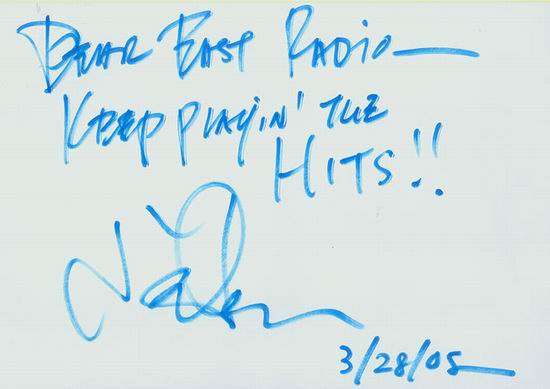 DEAR EAST RADIO—
KEEP PLAYIN' THE
HITS!!
3/28/05